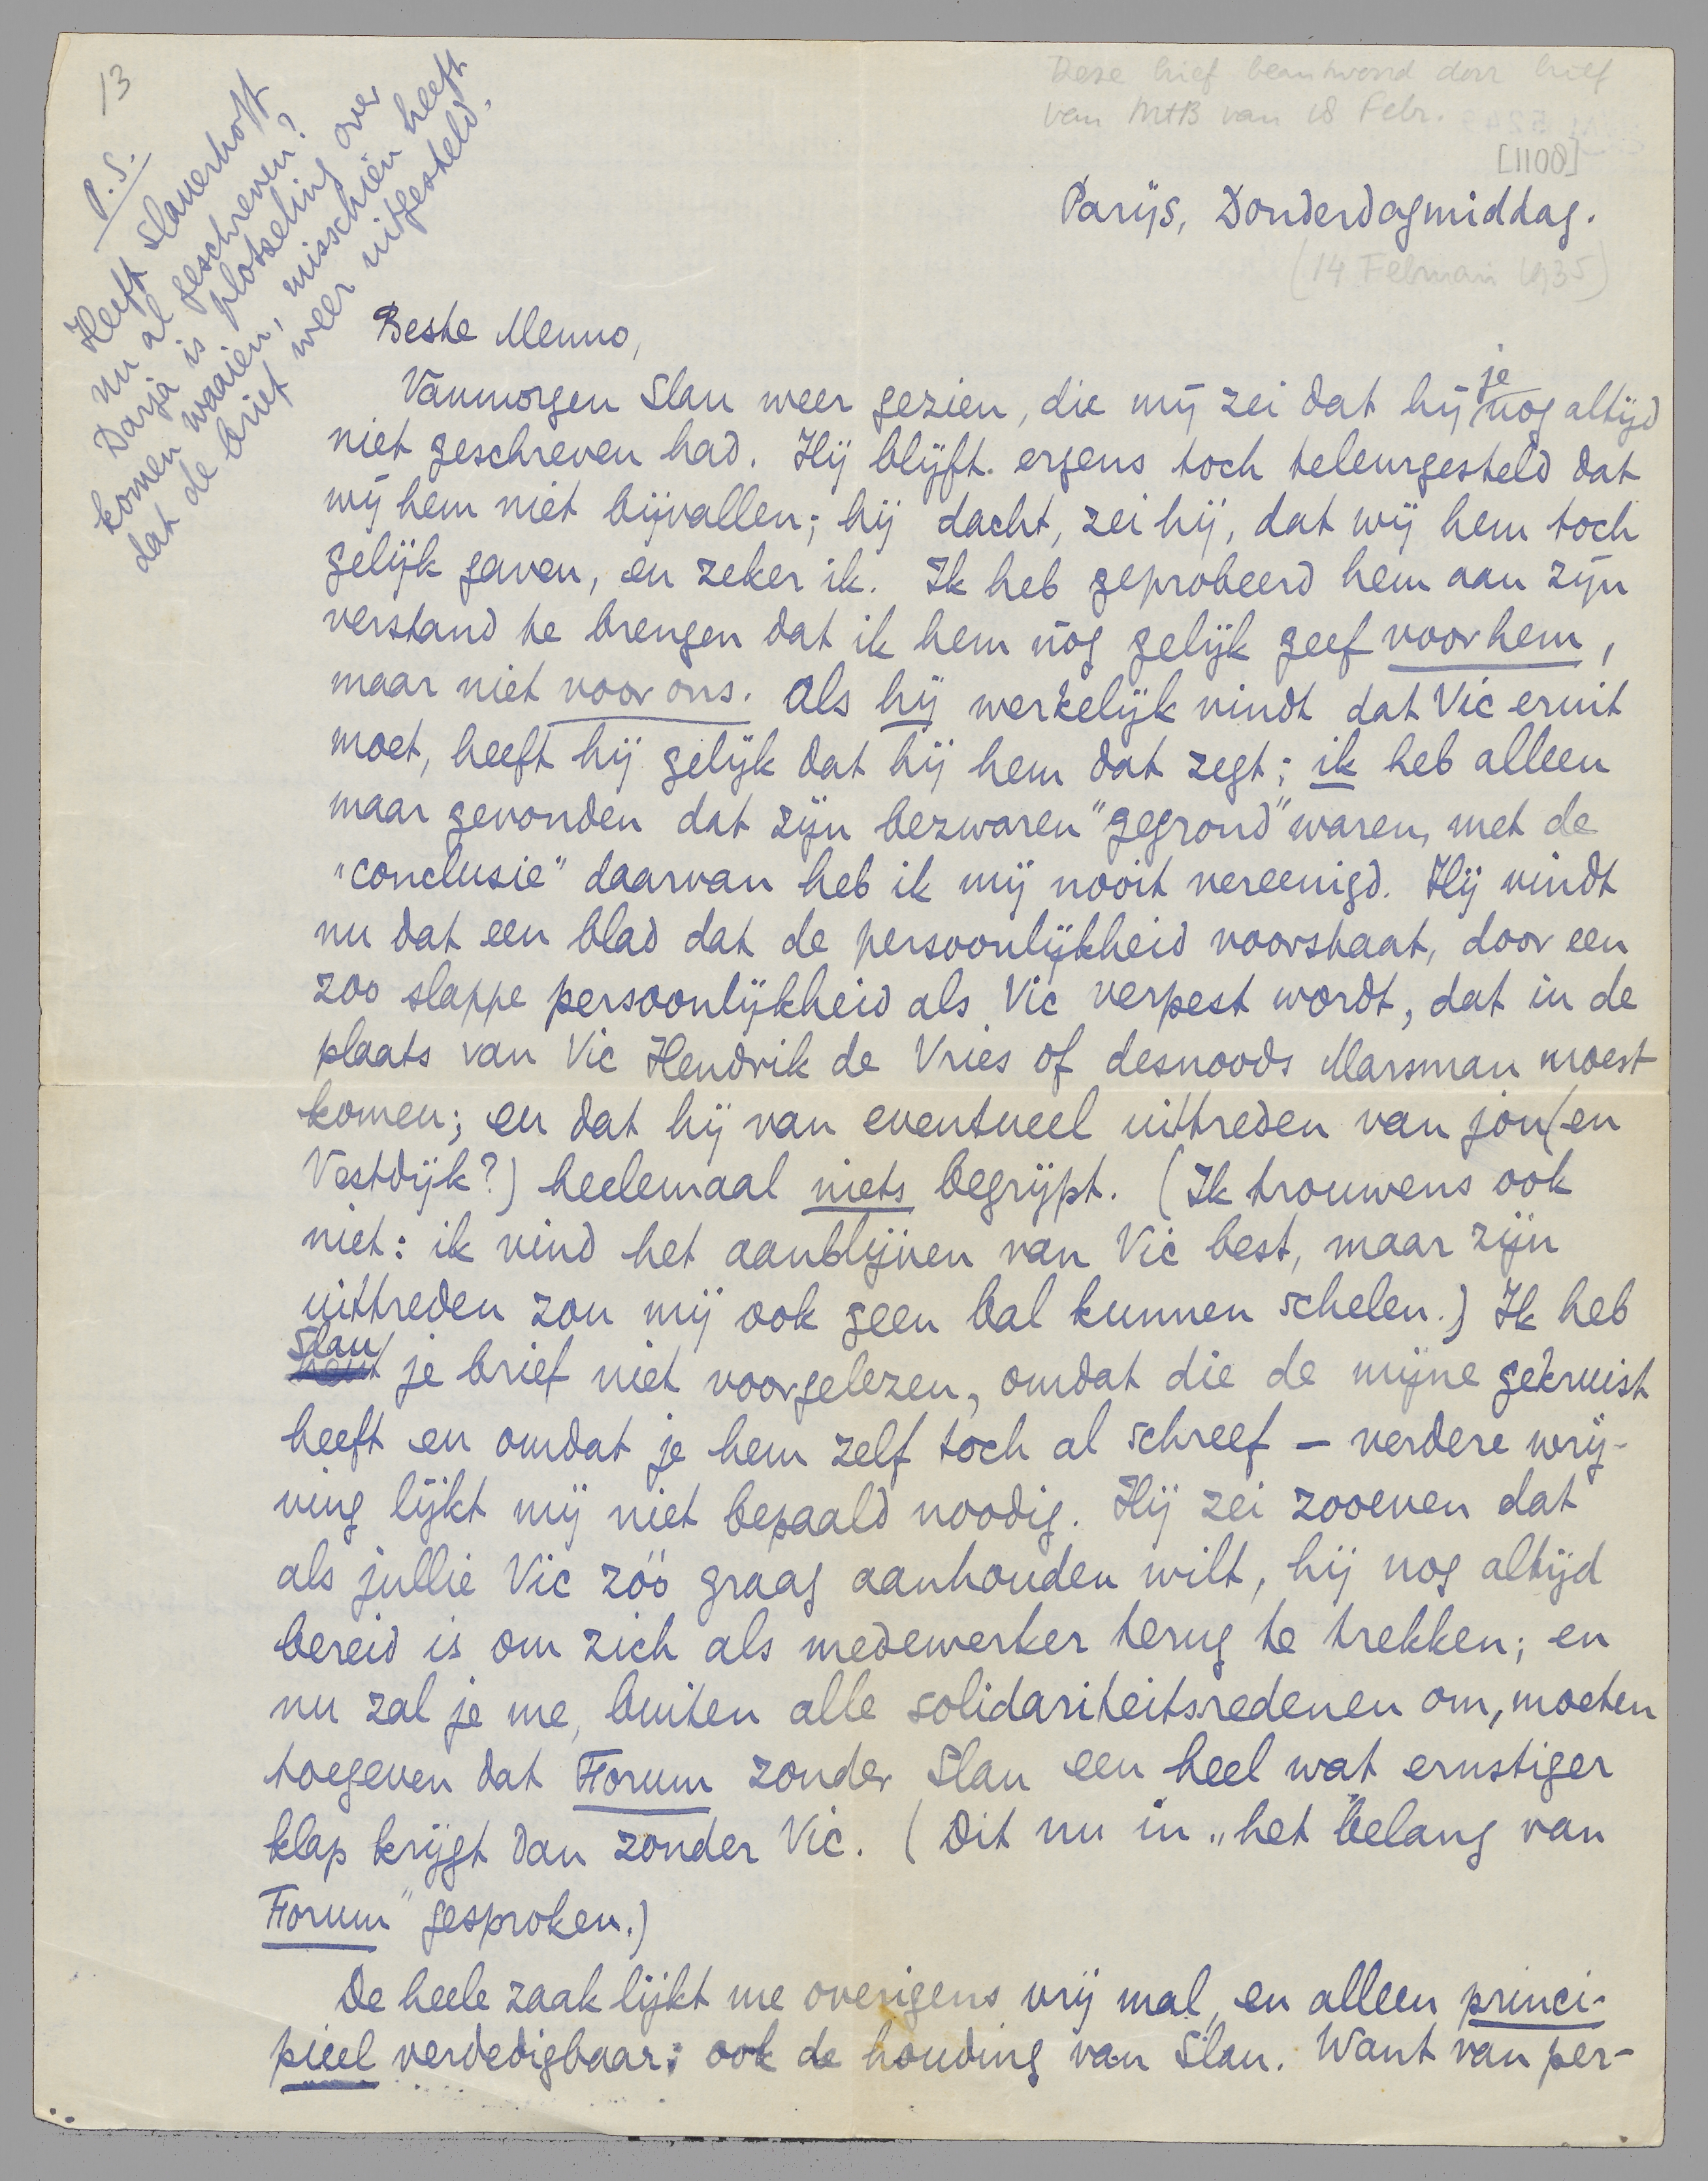 13
Deze brief beantwoord door brief
van MtB van 18 Febr.
[1108]
Parijs, Donderdagmiddag.
(14 Februari 1935)
P.S.
Heeft Slauerhoff
nu al geschreven?
Darja is plotseling over
komen waaien, misschien heeft
dat de brief weer uitgesteld.
Beste Menno,
Vanmorgen Slau weer gezien, die mij zei dat hij je nog altijd
niet geschreven had. Hij blijft ergens toch teleurgesteld dat
wij hem niet bijvallen; hij dacht, zei hij, dat wij hem toch
gelijk gaven, en zeker ik. Ik heb geprobeerd hem aan zijn
verstand te brengen dat ik hem nóg gelijk geef voor hem,
maar niet voor ons. Als hij werkelijk vindt dat Vic eruit
moet, heeft hij gelijk dat hij hem dat zegt; ik heb alleen
maar gevonden dat zijn bezwaren "gegrond" waren, met de
"conclusie" daarvan heb ik mij nooit vereenigd. Hij vindt
nu dat een blad dat de persoonlijkheid voorstaat, door een
zoo slappe persoonlijkheid als Vic verpest wordt, dat in de
plaats van Vic Hendrik de Vries of desnoods Marsman moest
komen; en dat hij van eventueel uittreden van jou (en
Vestdijk?) heelemaal niets begrijpt. (Ik trouwens ook
niet: ik vind het aanblijven van Vic best, maar zijn
uittreden zou mij ook geen bal kunnen schelen.) Ik heb
Slau
hem je brief niet voorgelezen, omdat die de mijne gekruist
heeft en omdat je hem zelf toch al schreef – verdere wrij-
ving lijkt mij niet bepaald noodig. Hij zei zooeven dat
als jullie Vic zóó graag aanhouden wilt, hij nog altijd
bereid is om zich als medewerker terug te trekken; en
nu zal je me, buiten alle solidariteitsredenen om, moeten
toegeven dat Forum zonder Slau een heel wat ernstiger
klap krijgt dan zonder Vic. (Dit nu in „het belang van
Forum" gesproken.)
De heele zaak lijkt me overigens vrij mal, en alleen princi-
pieel verdedigbaar; ook de houding van Slau. Want van per-